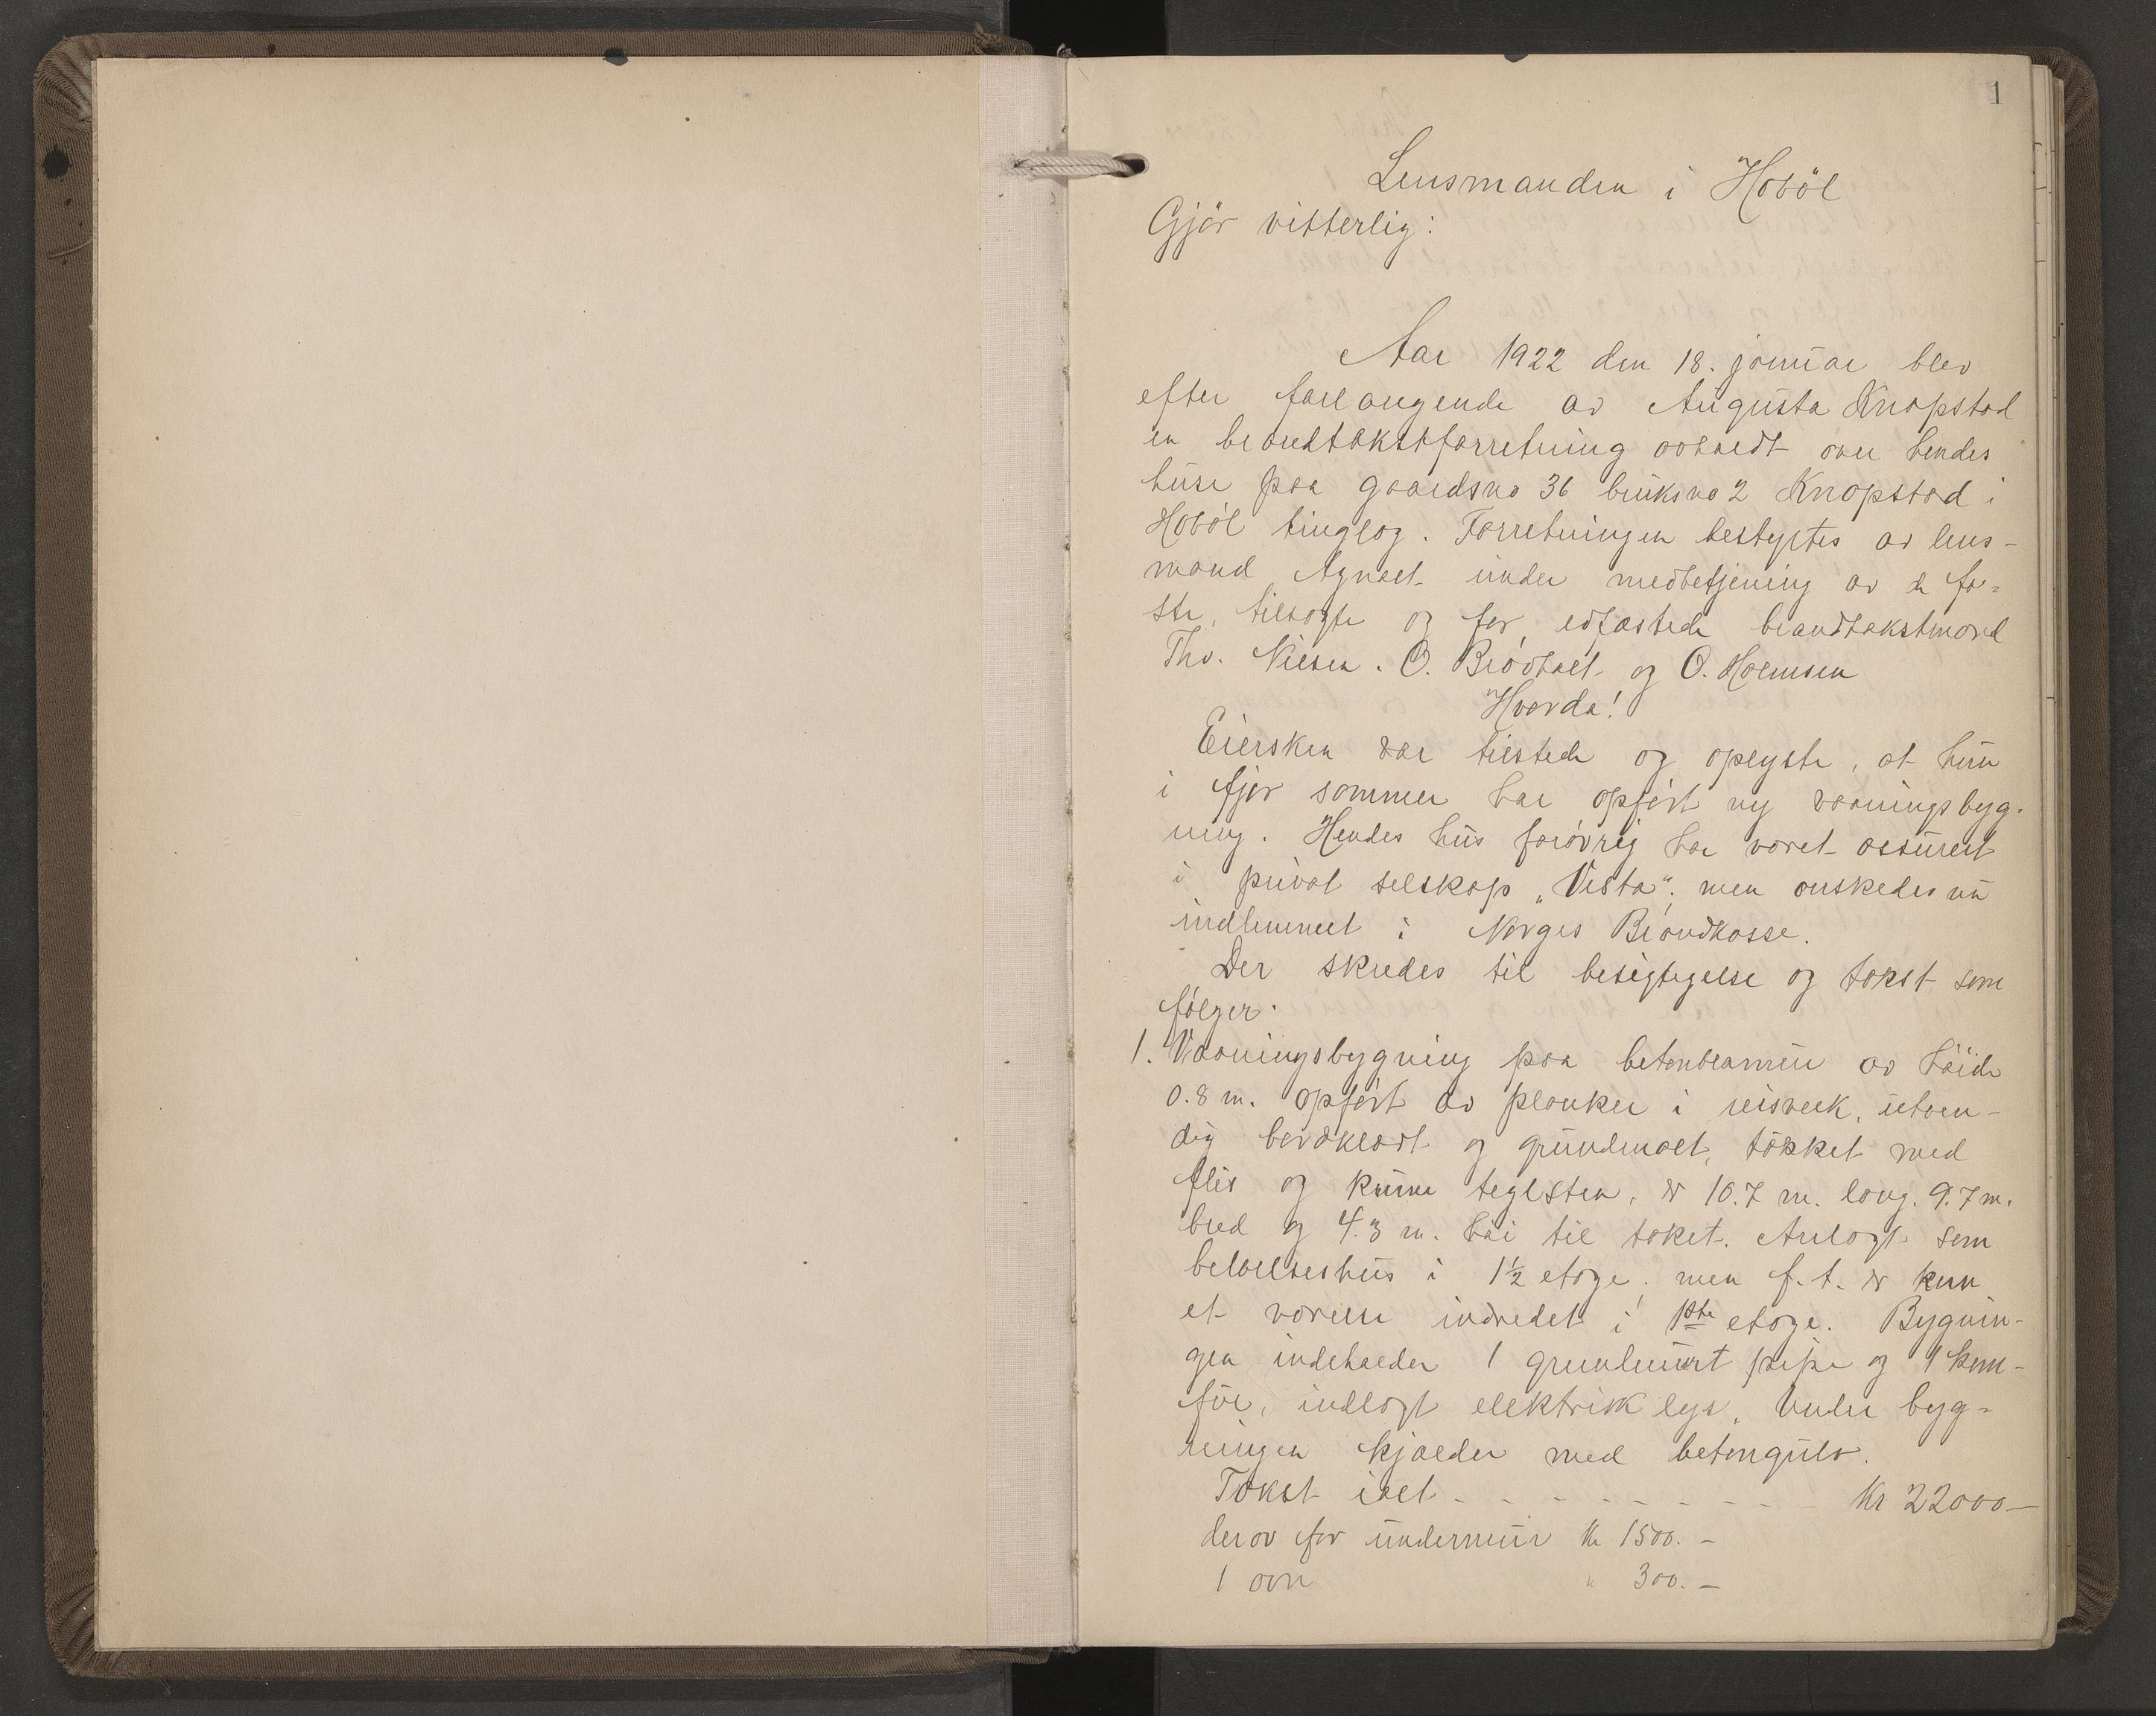 1
Lensmanden i Hobøl
Gjør vitterlig:
Aar 1922 den 18. januar blev
efter forlangende av Augusta Knapstad
en brandtakstforretning avholdt over hendes
huse paa gaardsno 36 bruksno 2 Knapstad i
Hobøl tinglag. Forretningen bestyrtes av lens-
mand under medbetjening av de fa-
ste, tilsagte og før edfæstede brandtakstmænd
Thv. Nilsen. O. Brødholt og O. Holmsen
Hvorda!
Eiersken var tilstede og oplyste, at hun
i fjor sommer har opført ny vaaningsbyg-
ning. Hendes hus forøvrig har været assurert
i privat selskap „Vesta", men ønskedes nu
indlemmet i Norges Brandkasse.
Der skredes til besigtigelse og takst som
følger:
1. Vaaningsbygning paa betongmur av høide
0.8 m. opført av planker i reisverk, utven-
dig bordklædt og grundmalt, tækket med
flis og krum teglsten, er 10.7 m. lang. 9.7 m.
bred og 4.3 m. høi til taket. Anlagt som
beboelseshus i 1½ etage, men f. t. er kun
et værelse indredet i 1ste etage. Bygnin-
gen indeholder 1 grundmurt pipe og 1 kom-
fur, indlagt elektrisk lys. Under byg-
ningen kjælder med betongulv.
Takst ialt - - - - - - - - Kr 22000 —
derav for undermur Kr 1500. —
1 ovn " 300. —